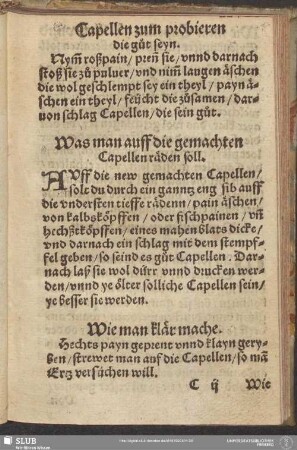 Capellen zum probieren
die gůt seyn.
Nym̃ roßpain / pren sie / vnnd darnach
stoß sie zů puluer / vnd nim̃ laugen åschen
die wol geschlempt sey ein theyl / payn å-
schen ein theyl / feücht die zůsamen / dar-
uon schlag Capellen / die sein gůt.
Was man auff die gemachten
Capellen råden soll.
AVff die new gemachten Capellen /
solt du durch ein ganntz eng sib auff
die vndersten tieffe rådenn / pain åschen /
von kalbsköpffen / oder fischpainen / vñ
hechßtköpffen / eines mahen blats dicke /
vnd darnach ein schlag mit dem stempff-
fel geben / so seind es gůt Capellen. Dar-
nach laß sie wol dürr vnnd drucken wer-
den / vnnd ye ölter solliche Capellen sein /
ye besser sie werden.
Wie man klår mache.
Hechts payn geprent vnnd klayn gery-
ben / strewet man auff die Capellen / so mã
Ertz versůchen will.
C ij Wie
SLUB
Wir führen Wissen.